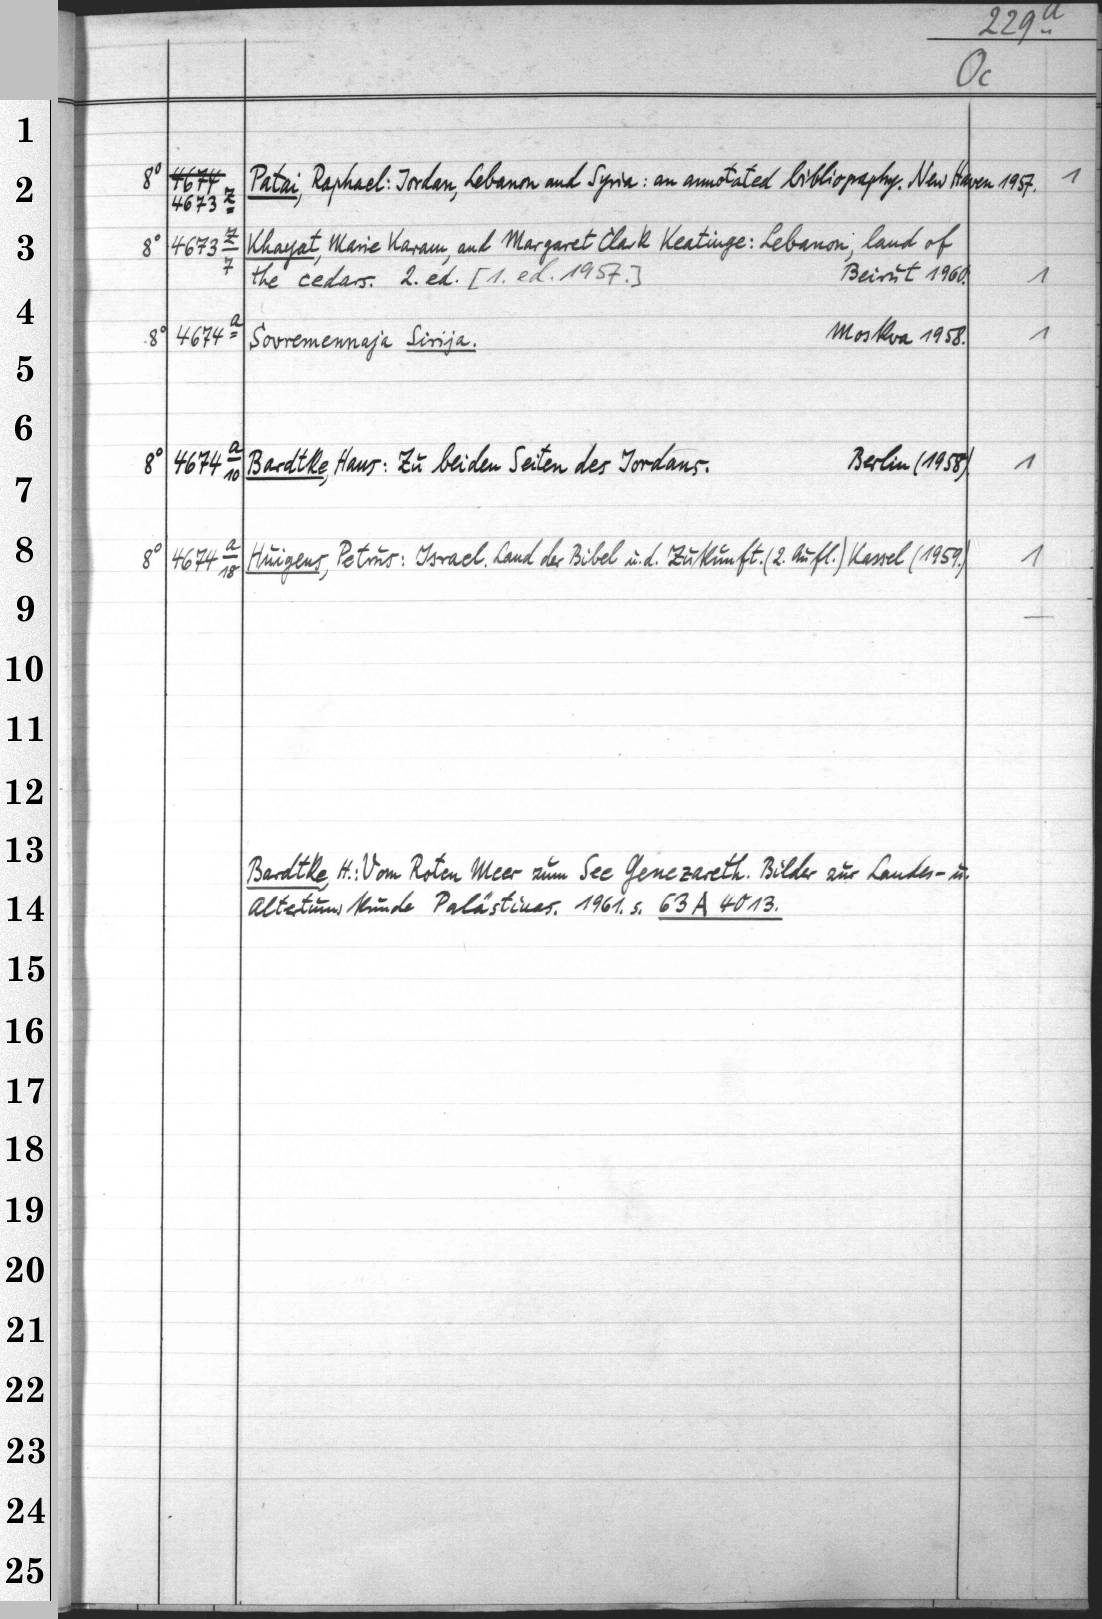 229a
Oc
1
2
3
4
5
6
7
8
9
10
11
12
13
14
15
16
17
18
19
20
21
22
23
24
25
8° 4674 Patai, Raphael: Jordan, Lebanon and Syria: an annotated bibliography. New Haven 1957. 1
4673 z
8° 4673 z/7 Khayat, Marie Karam, and Margaret Clark Keatinge: Lebanon, land of
the cedars. 2. ed. [1. ed. 1957.] Beirut 1960. 1
8° 4674 a Sovremennaja Sirija. Moskva 1958. 1
8° 4674 a/10 Bardtke, Hans: Zu beiden Seiten des Jordans. Berlin (1958) 1
8° 4674 a/18 Huigens, Petrus: Israel. Land der Bibel u. d. Zukunft. (2. Aufl.) Kassel (1959.) 1
Bardtke, H.: Vom Roten Meer zum See Genezareth. Bilder zur Landes- u.
Altertumskunde Palästinas. 1961. s. 63 A 4013.